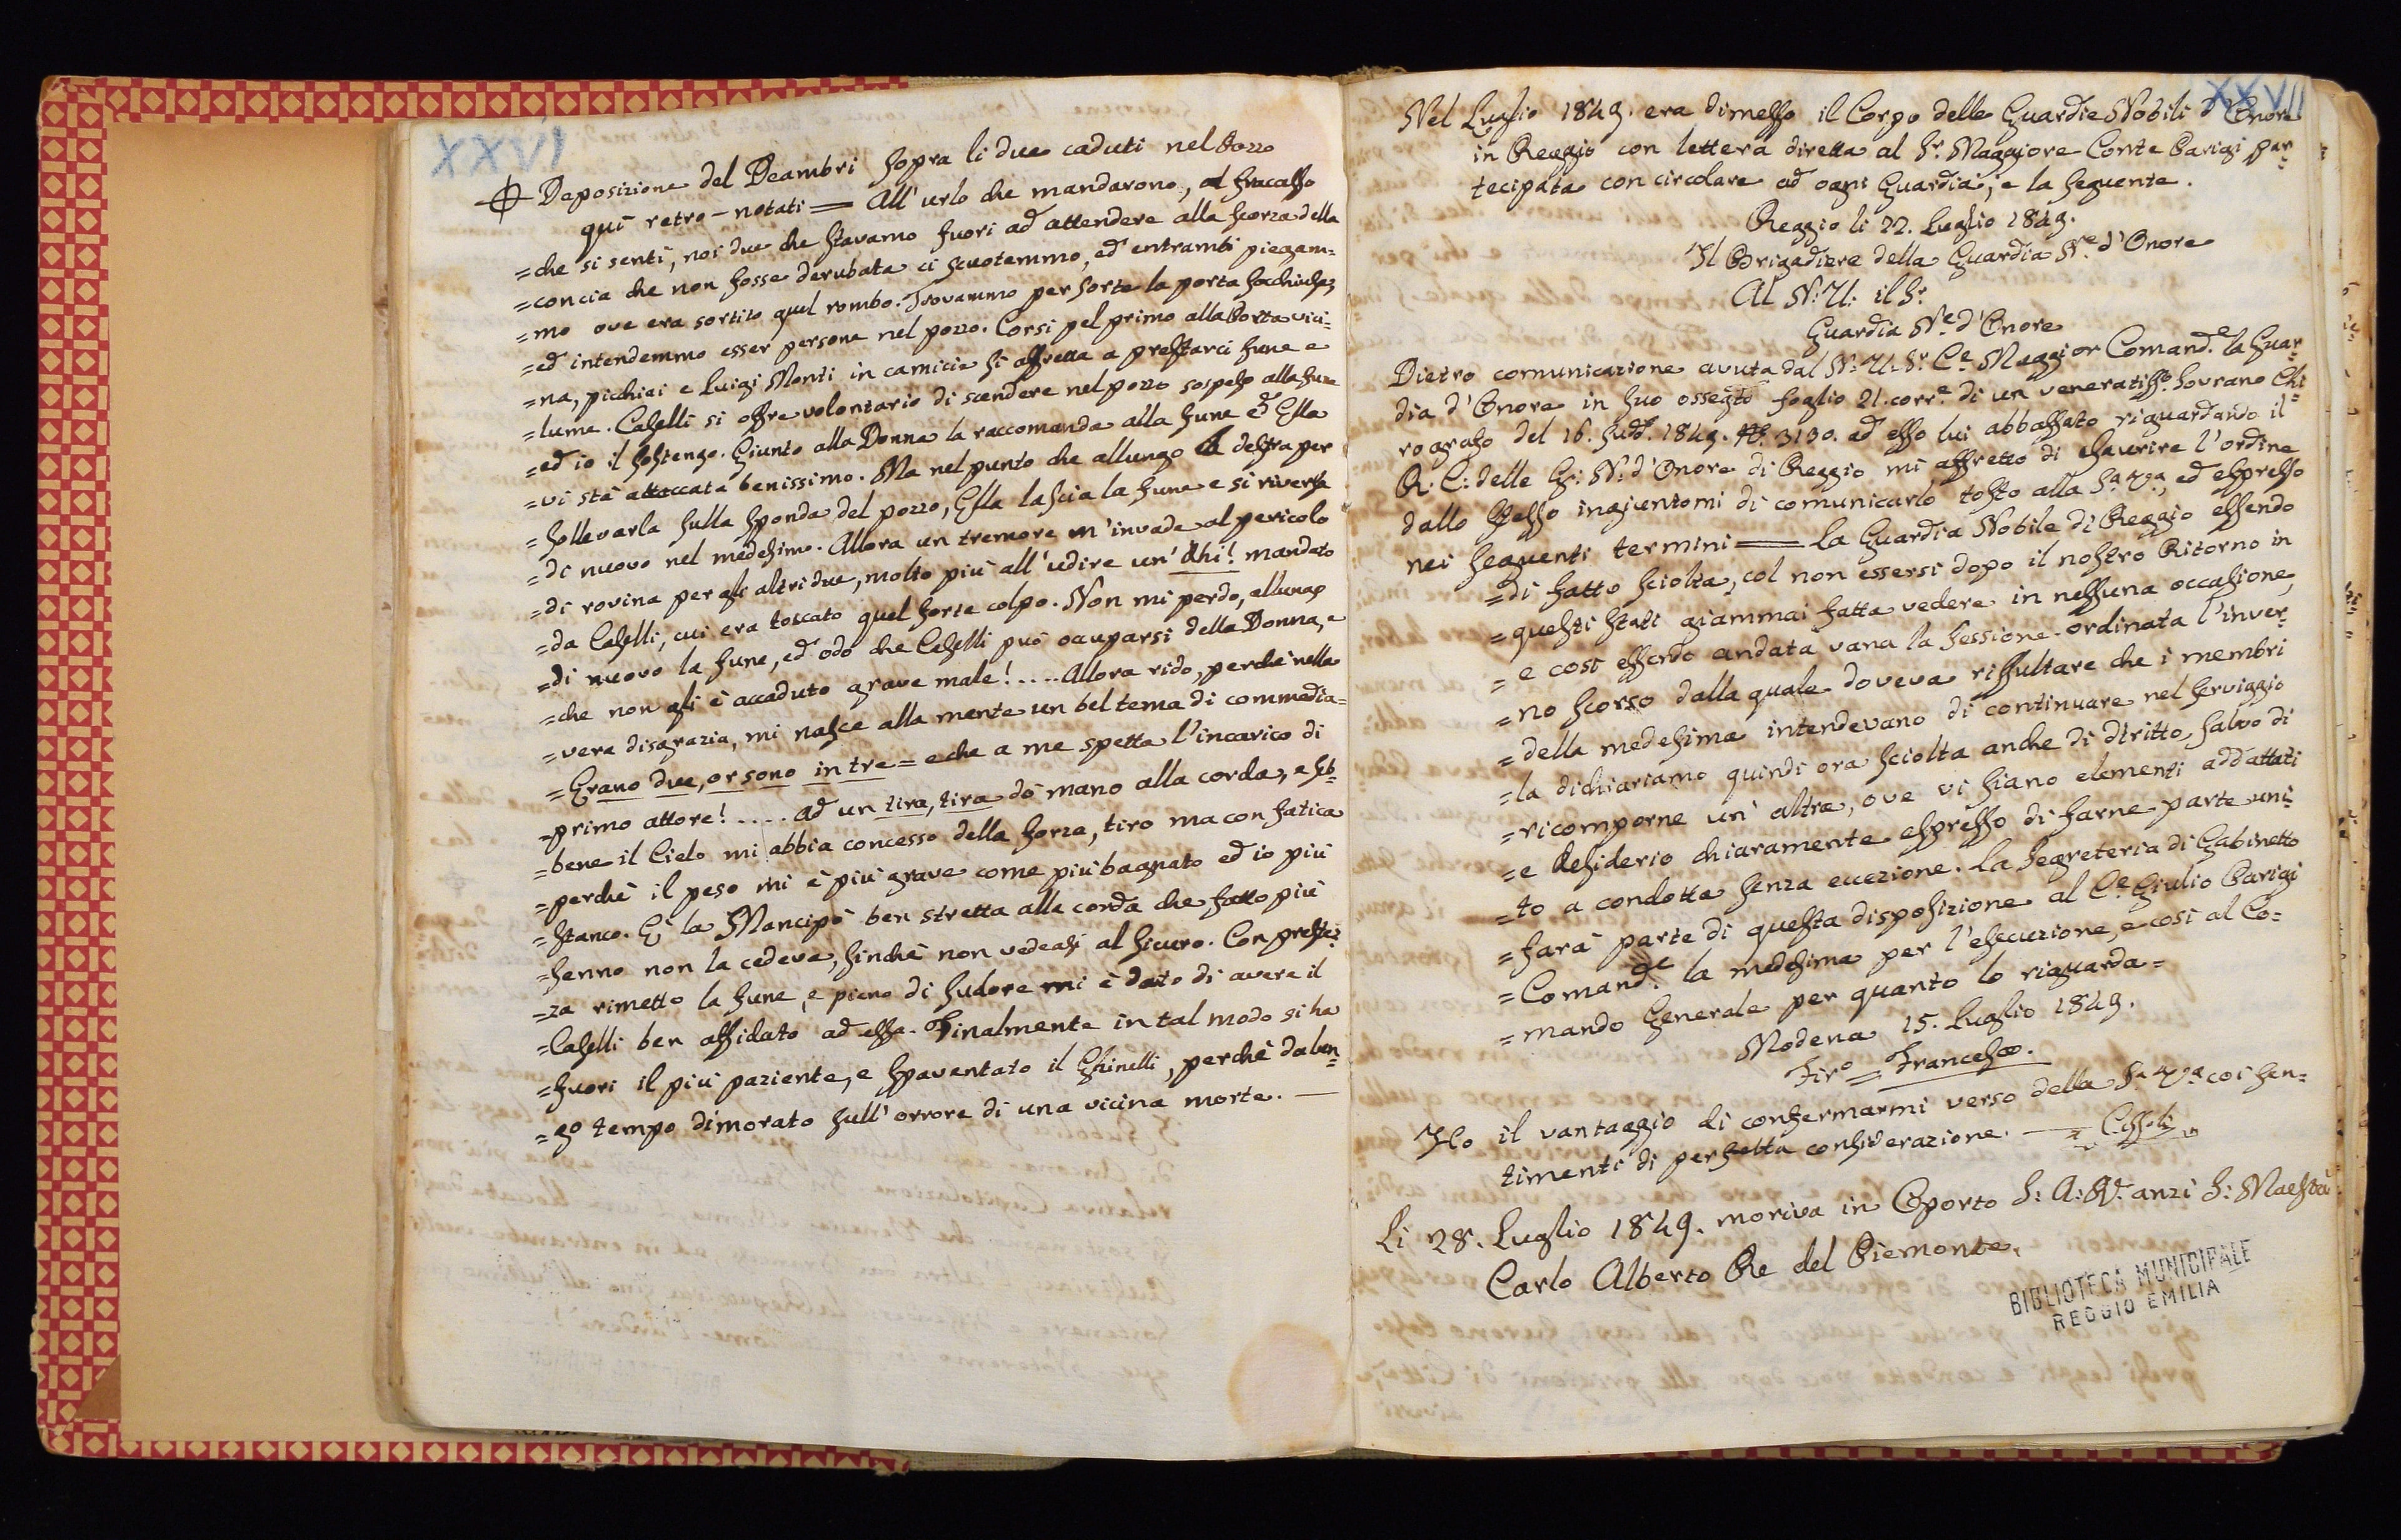 XXVI
Deposizione del Deambri sopra li due caduti nel Pozzo
qui retro-notati = All'urlo che mandarono, al fracasso
=che si sentì, noi due che stavamo fuori ad attendere alla scorza della
=concia che non fosse derubata ci scuotemmo, ed entrambi piegam=
=mo ove era sortito quel rombo. Trovammo per sorte la porta socchiusa,
=ed intendemmo esser persone nel pozzo. Corsi pel primo alla Porta vici=
=na, picchiai e Luigi Monti in camicia si affretta a prestarci fune e
=lume. Caselli si offre volontario di scendere nel pozzo sospeso alla fune
=ed io il sostengo. Giunto alla Donna la raccomanda alla fune ed Essa
=vi stà attaccata benissimo. Ma nel punto che allungo la destra per
=sollevarla sulla sponda del pozzo, Essa lascia la fune e si riversa
=di nuovo nel medesimo. Allora un tremore m'invade al pericolo
=di rovina per gli altri due, molto più all'udire un'Ahi! mandato
=da Caselli, cui era toccato quel forte colpo. Non mi perdo, allungo
=di nuovo la fune, ed odo che Caselli può occuparsi della Donna, e
=che non gli è accaduto grave male!.... Allora rido, perchè nella
=vera disgrazia, mi nasce alla mente un bel tema di commedia=
=Erano due, or sono in tre= e che a me spetta l'incarico di
=primo attore!.... Ad un tira, tira dò mano alla corda, e seb=
=bene il Cielo mi abbia concesso della forza, tiro ma con fatica
=perchè il peso mi è più grave come più bagnato ed io più
=stanco. E' la Mancipò ben stretta alla corda che fatto più
=senno non la cedeva, finchè non vedeasi al sicuro. Con prestez=
=za rimetto la fune, e pieno di sudore mi è dato di avere il
=Caselli ben affidato ad essa. Finalmente in tal modo si ha
=fuori il più paziente, e spaventato il Ghinelli, perchè da lun=
=go tempo dimorato sull'orrore di una vicina morte. —
XXVII
Nel Luglio 1849. era dimesso il Corpo delle Guardie Nobili d'Onore
in Reggio con lettera diretta al Sr. Maggiore Conte Parigi par=
tecipata con circolare ad ogni Guardia, e la seguente.
Reggio li 22. Luglio 1849.
Il Brigadiere della Guardia Ne. d'Onore
Al N: U: il Sr.
Guardia Ne. d'Onore
Dietro comunicazione avuta dal N: U: Sr. Ce. Maggior Comande. la Guar=
dia d'Onore in suo osseqto foglio 21. corre. di un veneratisso. Sovrano Chi=
rografo del 16. sudd. 1849. No. 3130. ad esso lui abbassato riguardando il
R: C: delle G: N: d'Onore di Reggio mi affretto di esaurire l'ordine
dallo stesso ingiuntomi di comunicarlo tosto alla Sa. Va., ed espresso
nei seguenti termini = La Guardia Nobile di Reggio essendo
=di fatto sciolta, col non essersi dopo il nostro Ritorno in
=questi stati giammai fatta vedere in nessuna occasione,
=e così essendo andata vana la sessione ordinata l'inver=
=no scorso dalla quale doveva risultare che i membri
=della medesima intendevano di continuare nel serviggio
=la dichiariamo quindi ora sciolta anche di diritto, salvo di
=ricomporne un'altra, ove vi siano elementi addattati
=e desiderio chiaramente espresso di farne parte uni=
=to a condotta senza eccezione. La Segreteria di Gabinetto
=farà parte di questa disposizione al Ce. Giulio Parigi
=Comande. la medesima per l'esecuzione, e così al Co=
=mando Generale per quanto lo riguarda=
Modena 15. Luglio 1849.
Firo. = Francesco.
Ho il vantaggio di confermarmi verso della Sa. Va. coi sen=
timenti di perfetta considerazione. —
Li 28. Luglio 1849. moriva in Oporto S: A: R. anzi S: Maestà
Carlo Alberto Re del Piemonte.
BIBLIOTECA MUNICIPALE
REGGIO EMILIA